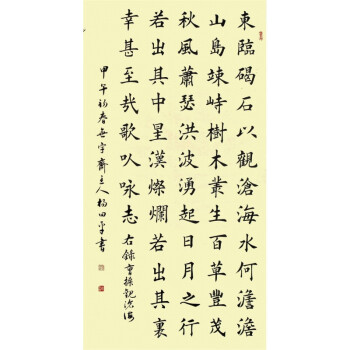 東臨碣石以觀滄海水何澹澹
山島竦峙樹木叢生百草豐茂
秋風蕭瑟洪波湧起日月之行
若出其中星漢燦爛若出其裏
幸甚至哉歌以咏志 右錄曹操觀滄海
甲午初春字齋主人楊田平書